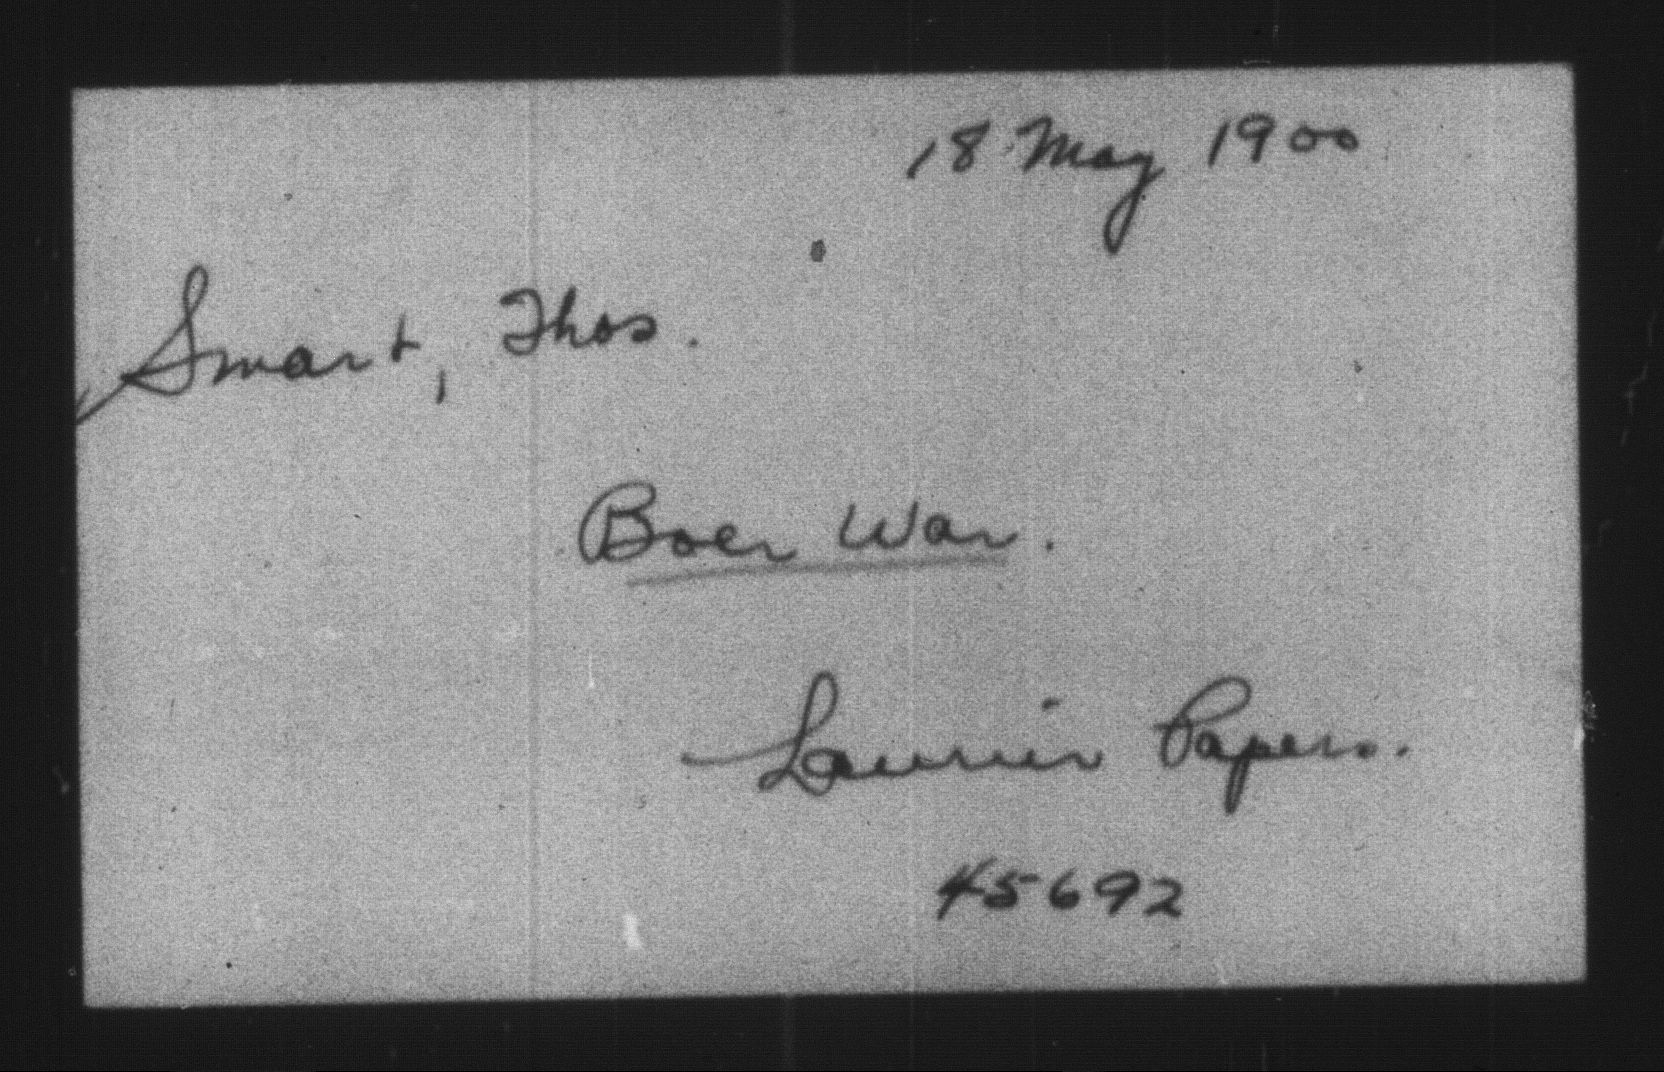 18 May 1900
Smart, Thos.
Boer War.
Laurier Papers.
45692